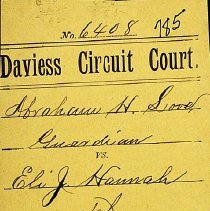 No. 6408 785
Daviess Circuit Court.
Abraham H. Good
Guardian
vs.
Eli J. Hannah